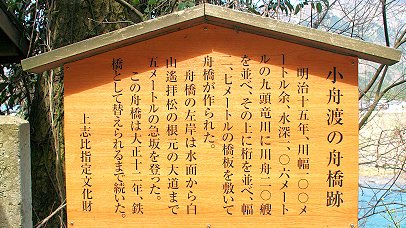 小舟渡の舟橋跡
明治十五年、川幅一〇〇メ
ートル余、水深一、〇六メート
ルの九頭竜川に川舟二〇艘
を並べ、その上に桁を並べ、幅
二、七メートルの橋板を敷いて
舟橋が作られた。
舟橋の左岸は水面から白
山遙拝松の根元の大道まで
五メートルの急坂を登った。
この舟橋は大正十二年、鉄
橋として替えられるまで続いた。
上志比指定文化財